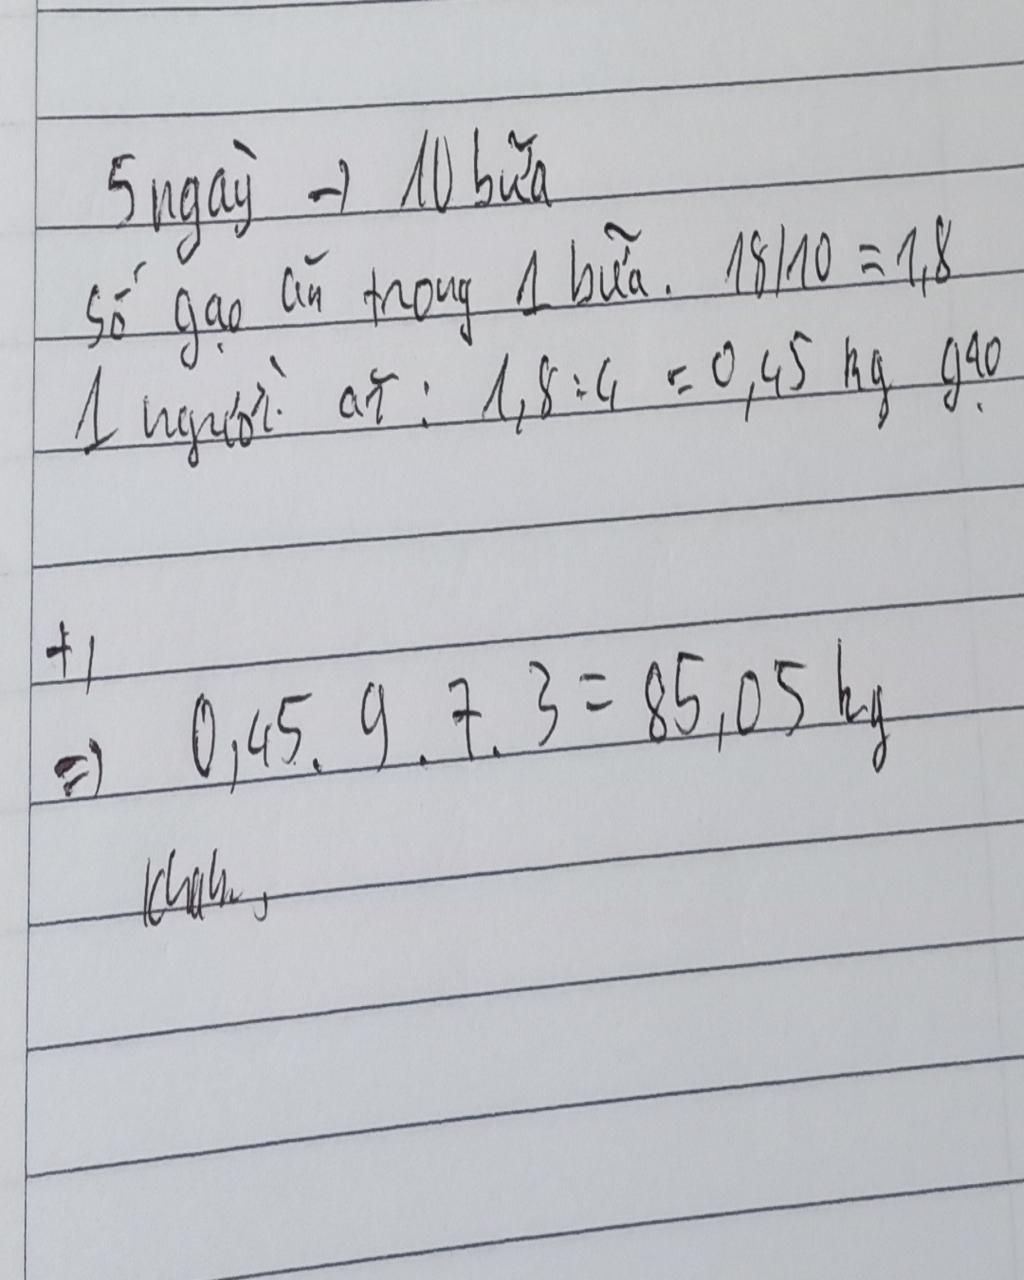 5 ngày → 10 bữa
Số gạo ăn trong 1 bữa. 18/10 = 1,8
1 người ăn: 1,8 : 4 = 0,45 kg gạo
+,
=> 0,45 . 9 . 7 . 3 = 85,05 kg